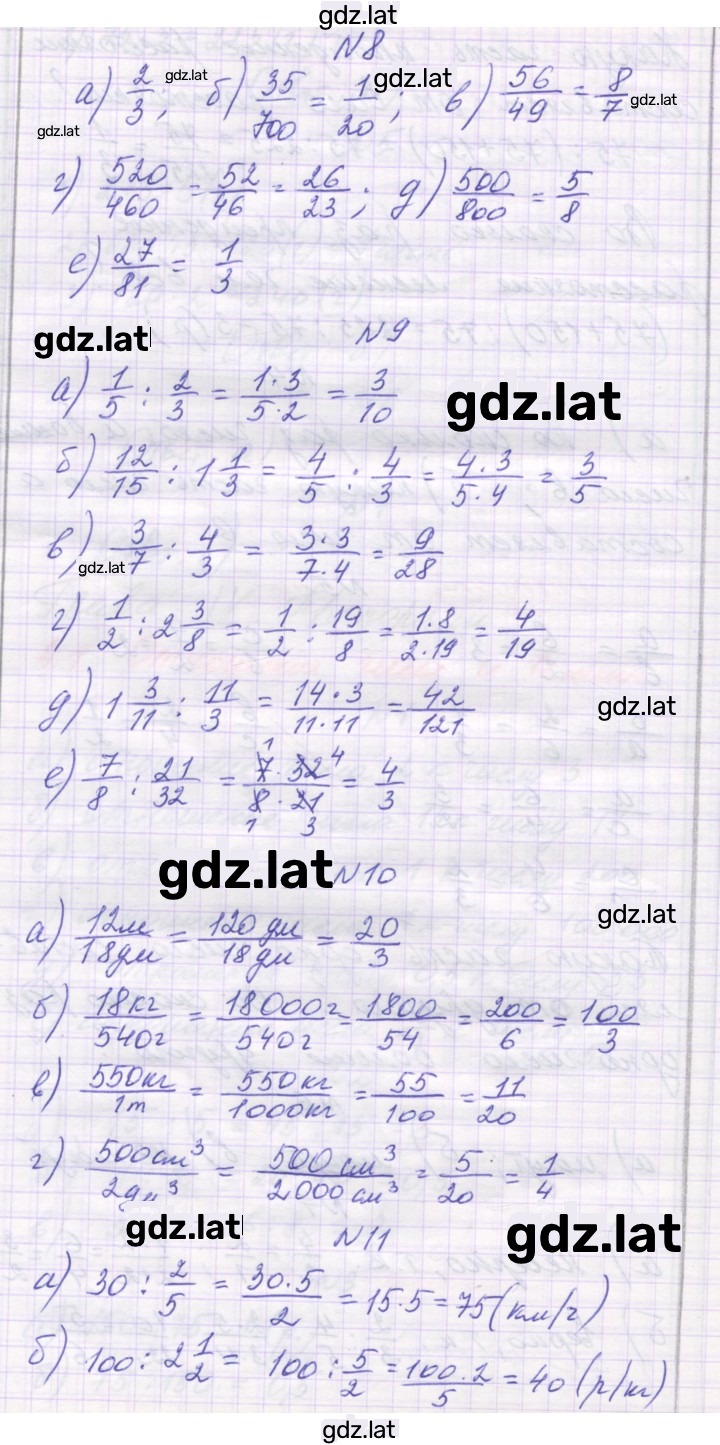 gdz.lat
N8
а) 2/3; б) 35/700 = 1/20; в) 56/49 = 8/7
gdz.lat gdz.lat gdz.lat gdz.lat
г) 520/460 = 52/46 = 26/23; д) 500/800 = 5/8
е) 27/81 = 1/3
gdz.lat N9
а) 1/5 : 2/3 = 1·3/5·2 = 3/10
gdz.lat
б) 12/15 : 1 1/3 = 4/5 : 4/3 = 4·3/5·4 = 3/5
в) 3/7 : 4/3 = 3·3/7·4 = 9/28
gdz.lat
г) 1/2 : 2 3/8 = 1/2 : 19/8 = 1·8/2·19 = 4/19
д) 1 3/11 : 11/3 = 14·3/11·11 = 42/121
gdz.lat
е) 7/8 : 21/32 = 7·32/8·21 = 4/3
1 4 1 3
gdz.lat N10
gdz.lat
а) 12м/18дм = 120дм/18дм = 20/3
б) 18кг/540г = 18000г/540г = 1800/54 = 200/6 = 100/3
в) 550кг/1т = 550кг/1000кг = 55/100 = 11/20
г) 500см³/2дм³ = 500см³/2000см³ = 5/20 = 1/4
gdz.lat N11 gdz.lat
а) 30 : 2/5 = 30·5/2 = 15·5 = 75 (км/г)
б) 100 : 2 1/2 = 100 : 5/2 = 100·2/5 = 40 (р/кг)
gdz.lat